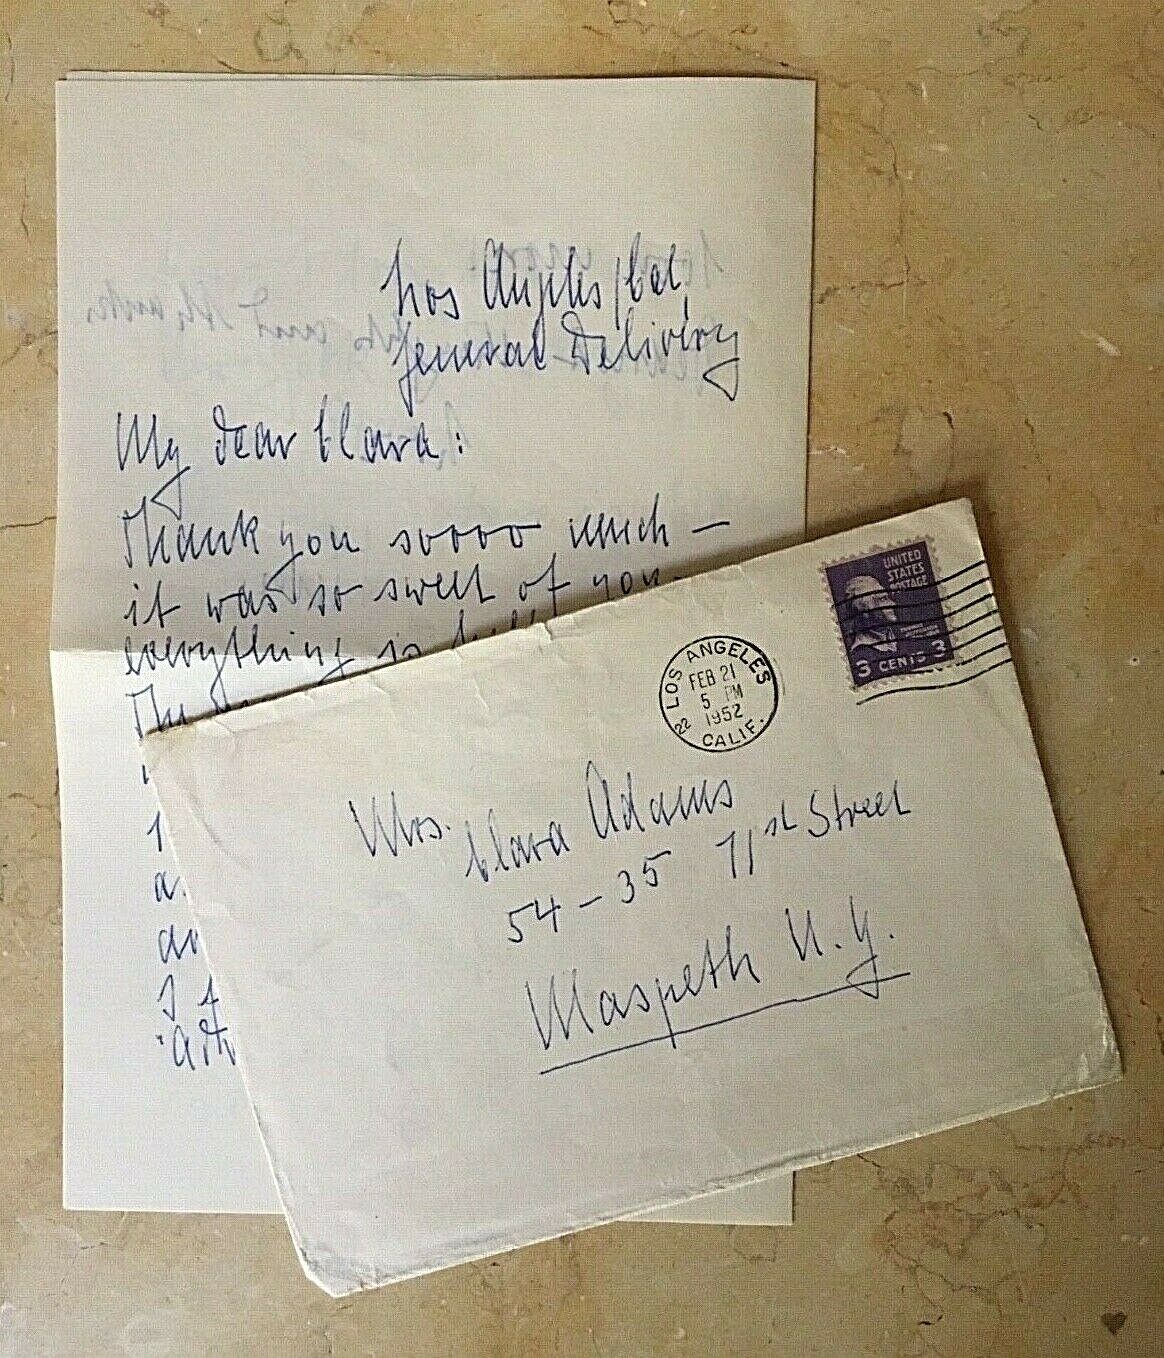 Los Angeles/Cal,
General Delivery
My dear Clara:
Thank you soooo much —
it was so sweet of you —
everything is
The
1
a
I
UNITED
STATES
POSTAGE
3 CENTS 3
LOS ANGELES
FEB 21
5 PM
1952
22
CALIF.
Mrs. Clara Adams
54-35 71st Street
Maspeth N.Y.